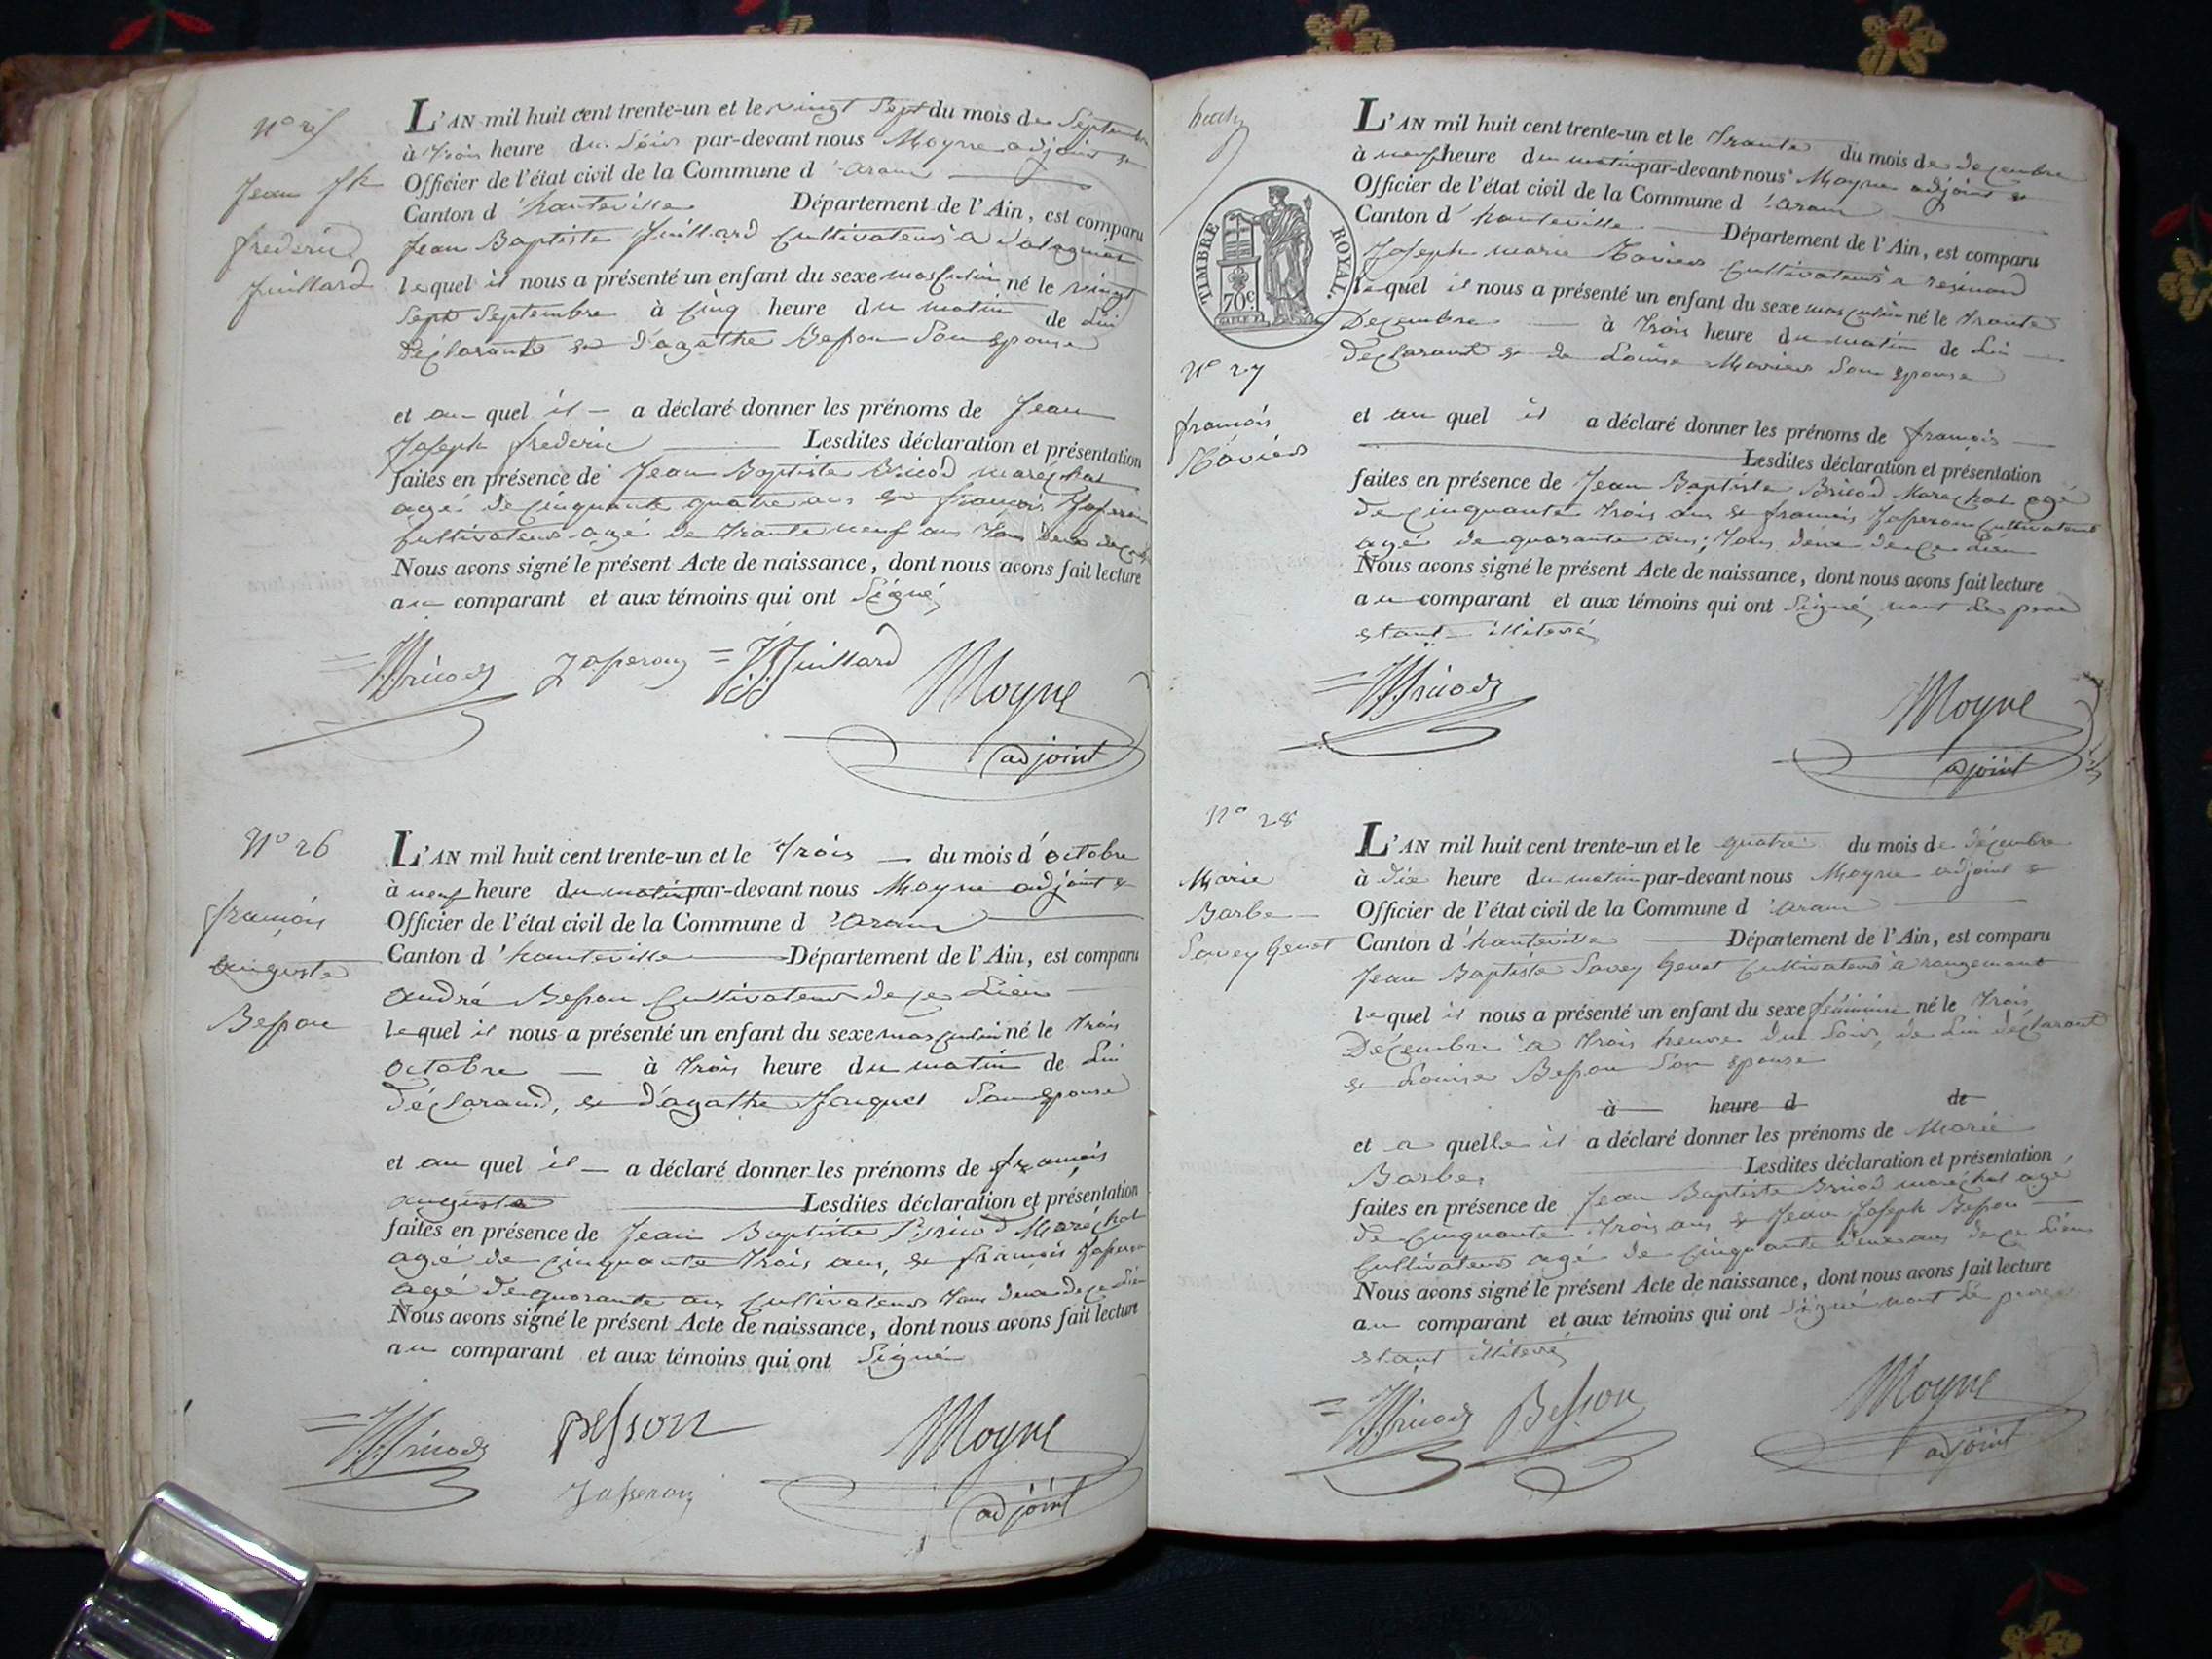 N° 25
Jean Jh
frederic
Juillard
L'AN mil huit cent trente-un et le vingt Sept du mois de Septembre
à trois heure du Soir par-devant nous Moyne adjoint et
Officier de l'état civil de la Commune d'aranc
Canton d'hauteville Département de l'Ain, est comparu
Jean Baptiste Juillard Cultivateur à
lequel il nous a présenté un enfant du sexe masculin né le vingt
Sept Septembre à Cinq heure du matin de Lui
Déclarant et d'agathe Besson Son epouse
et au quel il a déclaré donner les prénoms de Jean
Joseph frederic Lesdites déclaration et présentation
faites en présence de Jean Baptiste Bricod maréchal
agé de Cinquante quatre ans et françois Jasseron
Cultivateur agé de trante neuf ans tous deux de ce
Nous avons signé le présent Acte de naissance, dont nous avons fait lecture
au comparant et aux témoins qui ont Signé
JBBricod Jasseron = JBJuillard Moyne
adjoint
N° 26
françois
auguste
Besson
L'AN mil huit cent trente-un et le trois du mois d'octobre
à neuf heure du matin par-devant nous Moyne adjoint et
Officier de l'état civil de la Commune d'aranc
Canton d'hauteville Département de l'Ain, est comparu
andré Besson Cultivateur de ce Lieu
lequel il nous a présenté un enfant du sexe masculin né le trois
octobre à trois heure du matin de Lui
déclarand, et d'agathe Jouquet Son epouse
et au quel il a déclaré donner les prénoms de françois
auguste Lesdites déclaration et présentation
faites en présence de Jean Baptiste Bricod Maréchal
agé de cinquante trois ans, et françois Jasseron
agé de quorante ans Cultivateur tous deux de ce Lieu
Nous avons signé le présent Acte de naissance, dont nous avons fait lecture
au comparant et aux témoins qui ont Signé
JBBricod Besson Moyne
Jasseron adjoint
TIMBRE ROYAL.
70c
N° 27
françois
Tavier
L'AN mil huit cent trente-un et le trante du mois de decembre
à neuf heure du matin par-devant nous Moyne adjoint et
Officier de l'état civil de la Commune d'aranc
Canton d'hauteville Département de l'Ain, est comparu
Joseph marie Tavier Cultivateur a resinand
lequel il nous a présenté un enfant du sexe masculin né le trante
Decembre à trois heure du matin de Lui
déclarant et de Louise Mavier Son epouse
et au quel il a déclaré donner les prénoms de françois
Lesdites déclaration et présentation
faites en présence de Jean Baptiste Bricod Marechal agé
de cinquante trois ans et francois Jasseron Cultivateur
agé de quorante ans, tous deux de ce Lieu
Nous avons signé le présent Acte de naissance, dont nous avons fait lecture
au comparant et aux témoins qui ont Signé nont Le pere
etant illiteré
= JBBricod Moyne
adjoint
N° 28
Marie
Barbe
Savey Genet
L'AN mil huit cent trente-un et le quatre du mois de décembre
à dix heure du matin par-devant nous Moyne adjoint et
Officier de l'état civil de la Commune d'aranc
Canton d'hauteville Département de l'Ain, est comparu
Jean Baptiste Savey Genet Cultivateur à rougemont
lequel il nous a présenté un enfant du sexe féminin né le trois
Décembre à trois heure du Soir, de Lui déclarant
et Louise Besson Son epouse
à heure d de
et a quelle il a déclaré donner les prénoms de Marie
Barbe Lesdites déclaration et présentation
faites en présence de Jean Baptiste Bricod maréchal agé
de Cinquante trois ans et Jean Joseph Besson
Cultivateur agé de Cinquante deux ans de ce Lieu
Nous avons signé le présent Acte de naissance, dont nous avons fait lecture
au comparant et aux témoins qui ont Signé nont Le pere
etant illiteré
= JBBricod Besson Moyne
adjoint